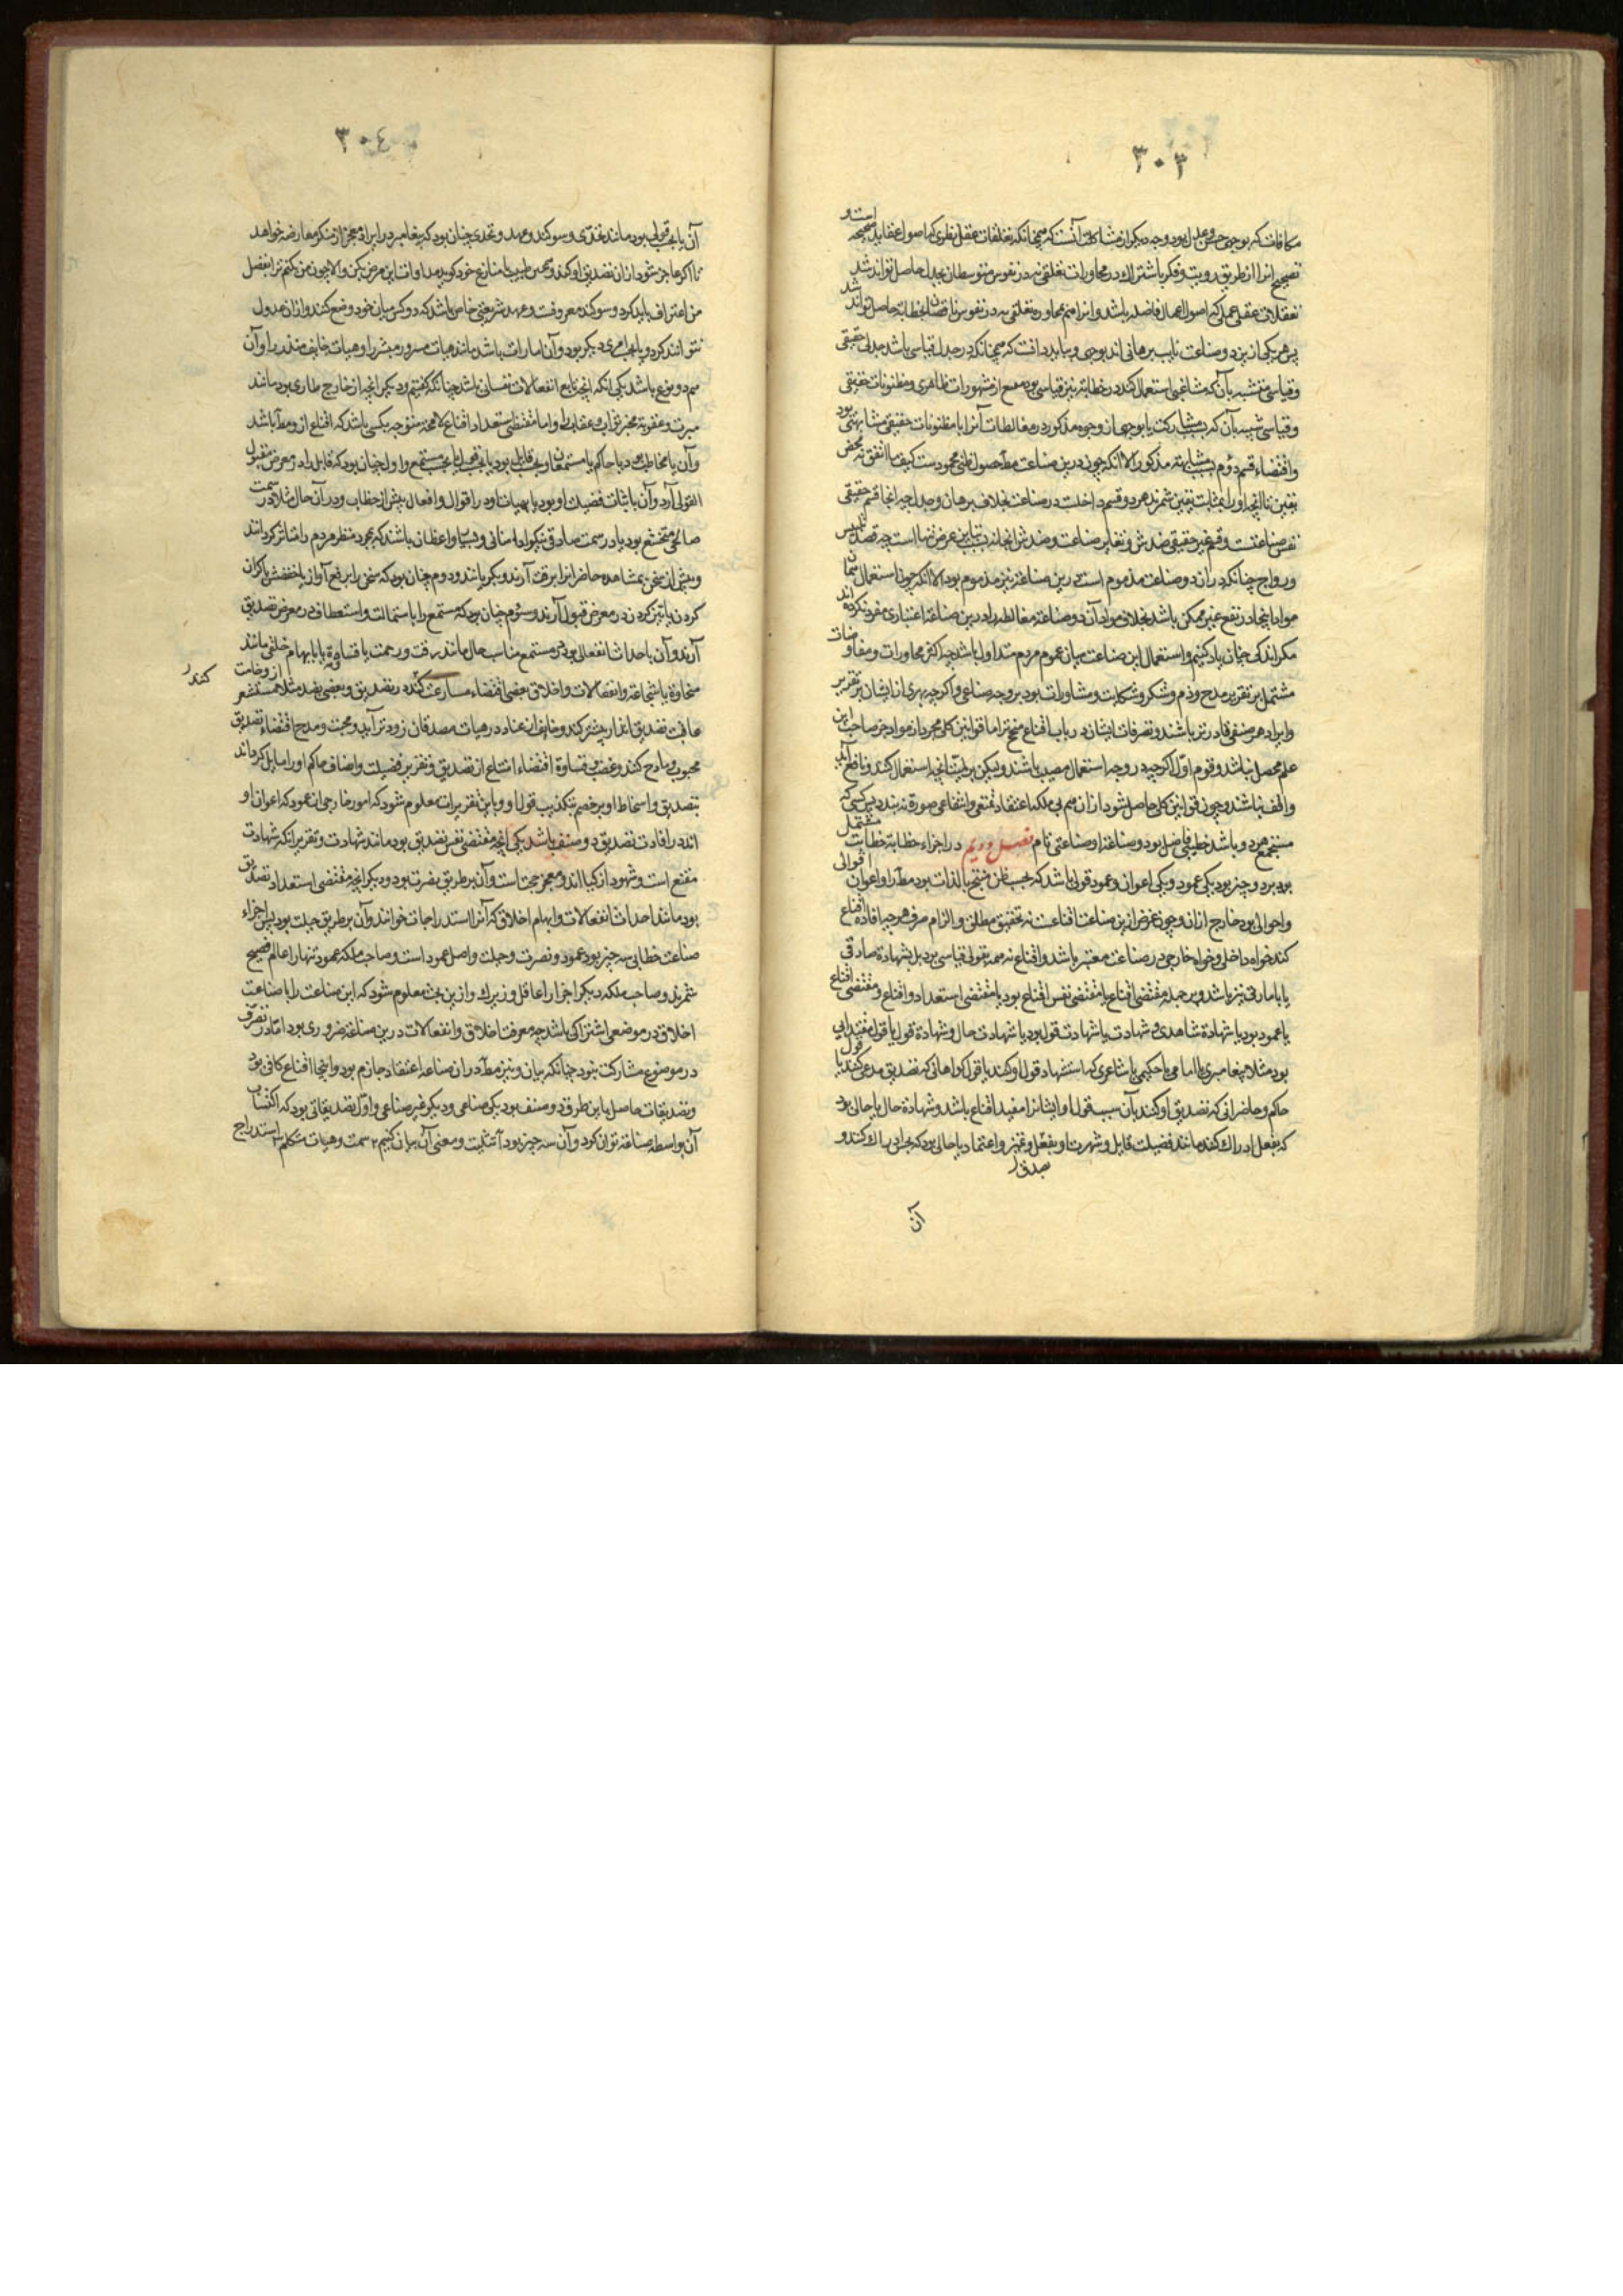 ٣٠٣
مکافات که بوجهی حسن و عدل بود و وجه دیگر از مشاکلت آنست که همچنانکه تعلقات عقل نظری که اصول عقاید صحیحه است و
تصحیح آنرا از طریق رویت و فکر باشتراک در محاورات تعلقی نه در نفوس متوسطان بجدل حاصل تواند شد
تعقلات عقلی عملی که اصول اعمال فاضله باشد و آنرا هم محاوره تعلقی نه در نفوس ناقصان بخطابة حاصل تواند شد
پس هر یکی ازین دو صناعت نایب برهانی اند بوجهی و بباید دانست که همچنانکه در جدل قیاسی باشد جدلی حقیقی
و قیاسی متشبه بآن که مشاغبی استعمال کند در خطابة نیز قیاسی بود مقنع از مشهورات ظاهری و مظنونات حقیقی
و قیاسی شبیه بآن که بسبب مشارکت یا بوجهی از وجوه مذکور در مغالطات آنرا با مظنونات حقیقی مشابهتی بود
و اقتضاء قسم دوم بسبب مشابهة مذکور الا آنکه چون درین صناعت مطلوب حصول ظنی محمودست کیف ما اتفق نه محض
یقین تا آنچه او را بمثابت یقین شمرند هر دو قسم داخلست در صناعت بخلاف برهان و جدل چه آنجا قسم حقیقی
نفس صناعتست و قسم غیر حقیقی ضدش و تغایر صناعت و ضدش آنجا نه بسبب تباین غرض تنها است چه قصد تلبیس
و رواج چنانکه در آن دو صناعت مذموم است درین صناعة نیز مذموم بود الا آنکه چون استعمال همان
مواد اینجا در نفع غیر ممکن باشد بخلاف مواد آن دو صناعة مغالطه را درین صناعة اعتباری مفرد نکرده اند
مگر اندکی چنان یاد کنیم و استعمال این صناعت میان عموم مردم متداول باشد چه اکثر محاورات و مفاوضات
مشتمل بر تقریر مدح و ذم و شکر و شکایت و مشاورات بود بر وجه صناعی و اگر چه بهری از ایشان بر تقریر
و ایراد هر صنفی قادرتر باشند و تصرفات ایشان در باب اقناع منجح‌تر اما قوانین کلی مجرد از مواد جز صاحب این
علم محصل نباشد و قوم اول اگر چه در وجه استعمال مصیب باشند ولیکن بر لمیت آنچه استعمال کنند و نافع آید
واقف نباشند و چون قوانین کلی حاصل شود از آن هم بی ملکه اعتقاد نفعی و انتفاعی صورة نه بندد پس کسی که
مستجمع هر دو باشد خطیبی فاضل بود و صناعة او صناعتی تام فصل دویم در اجزاء خطابة خطابت مشتمل
بود بر دو چیز بود یکی عمود و یکی اعوان و عمود قولی باشد که بحسب ظن منتج بالذات بود مطلوب را و اعوان اقوالی
و احوالی بود خارج از آن و چون غرض ازین صناعت اقناعست نه تحقیق مطلق و الزام صرف هر چه افاده اقناع
کند خواه داخلی و خواه خارجی در صناعت معتبر باشد و اقناع نه همه بقولی قیاسی بود بل بشهادة صادقی
یا بامارتی نیز باشد و بر جمله مقتضی اقناع یا مقتضی نفس اقناع بود یا مقتضی استعداد و اقناع و مقتضی اقناع
یا عمود بود یا شهادة شاهدی و شهادت یا شهادت قول بود یا شهادت حال و شهادة قول یا قول مقتدایی
بود مثلا پیغامبری یا امامی یا حکیمی یا شاعری که استشهاد قول او کنند یا قول گواهانی که تصدیق مدعی کنند یا قول
حاکم و حاضرانی که تصدیق او کنند بآن سبب قول او ایشانرا مفید اقناع باشد و شهادة حال یا حالی بود
که بعقل ادراک کنند مانند فضیلت قایل و شهرت او بعقل و تمیز و اعتماد یا حالی بود که بحس ادراک کنند و
بصدق
آن
٣٠٤
آن یا بحسب قولی بود مانند تحدی و سوگند و عهد و تحدی چنان بود که پیغامبر در ایراد معجز از منکر معارضه خواهد
تا اگر عاجز شود از آن تصدیق او کند و همچنین طبیب با منازع خود گوید مداوات این مرض بکن والا چون من کنم ترا بفضل
من اعتراف باید کرد و سوگند معروفست و عهد شریعتی خاص باشد که دو کس میان خود وضع کنند و از آن عدول
نتوانند کرد و یا بحسب امری دیگر بود و آن امارات باشد مانند هیات مسرور مبشر را و هیات خایف منذر را و آن
هم دو نوع باشد یکی آنکه آنچه تابع انفعالات نفسانی باشد چنانکه گفتیم و دیگر آنچه از خارج طاری بود مانند
مبرت و عقوبة مخبر ثواب و عقاب را و اما مقتضی استعداد اقناع لامحة متوجه بکسی باشد که اقناع ازو مطلوب باشد
و آن یا مخاطب بود یا حاکم یا مستمعان و بحسب قایل بود یا بحسب قول یا بحسب مستمع و اول چنان بود که قایل را در معرض مقبول
القولی آرد و آن باثبات فضیلت او بود یا بهیات او در اقوال و افعال پیش از خطاب و در آن حال مثلا در سمت
صالحی متخشع بود یا در سمت صادقی نیکو ادا سانی و بسیار واعظان باشند که بمجرد منظر مردم را متاثر گردانند
و پیش از سخن بمشاهده حاضرانرا برقت آرند و بگریانند و دوم چنان بود که سخن را برفع آواز یا خفضش یا گران
کردن یا تیز کردن در معرض قبول آرند و سوم چنان بود که مستمع را باستمالت و استعطاف در معرض تصدیق
آرند و آن باحداث انفعالی بود در مستمع مناسب حال مانند رقت و رحمت یا قساوة یا بایهام خلقی مانند
سخاوة یا شجاعة و انفعالات و اخلاق بعضی اقتضاء مسارعت کند در تصدیق و بعضی بضد مثلا مستشعر از وخامت
کند
عاقبت تصدیق انذار بیشتر کند و خایف از عناد در هیات مصدقان زودتر آید و محبت و مدح اقتضاء تصدیق
محبوب و مادح کند و غضب و قساوة اقتضاء امتناع از تصدیق و تقریر فضیلت و انصاف حاکم او را مایل گرداند
بتصدیق و اسخاط او بر خصم بتکذیب قول او و باین تقریرات معلوم شود که امور خارجی از عمود که اعوان او
اند در افادت تصدیق دو صنف باشد یکی آنچه مقتضی نفس تصدیق بود مانند شهادت و تقریر آنکه شهادت
مقنع است و شهود از کیااند و معجز حجت است و آن بر طریق نصرت بود و دیگر آنچه مقتضی استعداد تصدیق
بود مانند احداث انفعالات و ایهام اخلاق که آنرا استدراجات خوانند و آن بر طریق حیلت بود پس اجزاء
صناعت خطابی سه چیز بود عمود و نصرت و حیلت و اصل عمود است و صاحب ملکه عمود تنها را عالم فصیح
شمرند و صاحب ملکه دیگر اجزا را عاقل و زیرک و ازین بحث معلوم شود که این صناعت را با صناعت
اخلاق در موضعی اشتراکی باشد چه معرفت اخلاق و انفعالات درین صناعة ضروری بود اما در تصرف
در موضوع مشارکت نبود چنانکه بیان و نیز مطلوب در آن صناعة اعتقاد جازم بود و اینجا اقناع کافی بود
و تصدیقات حاصل باین طرق دو صنف بود یکی صناعی و دیگر غیر صناعی و اول تصدیقاتی بود که اکتساب
آن بواسطه صناعة توان کرد و آن سه چیز بود آ تثبیت و معنی آن بیان کنیم ٢ سمت و هیات متکلم ٣ استدراج